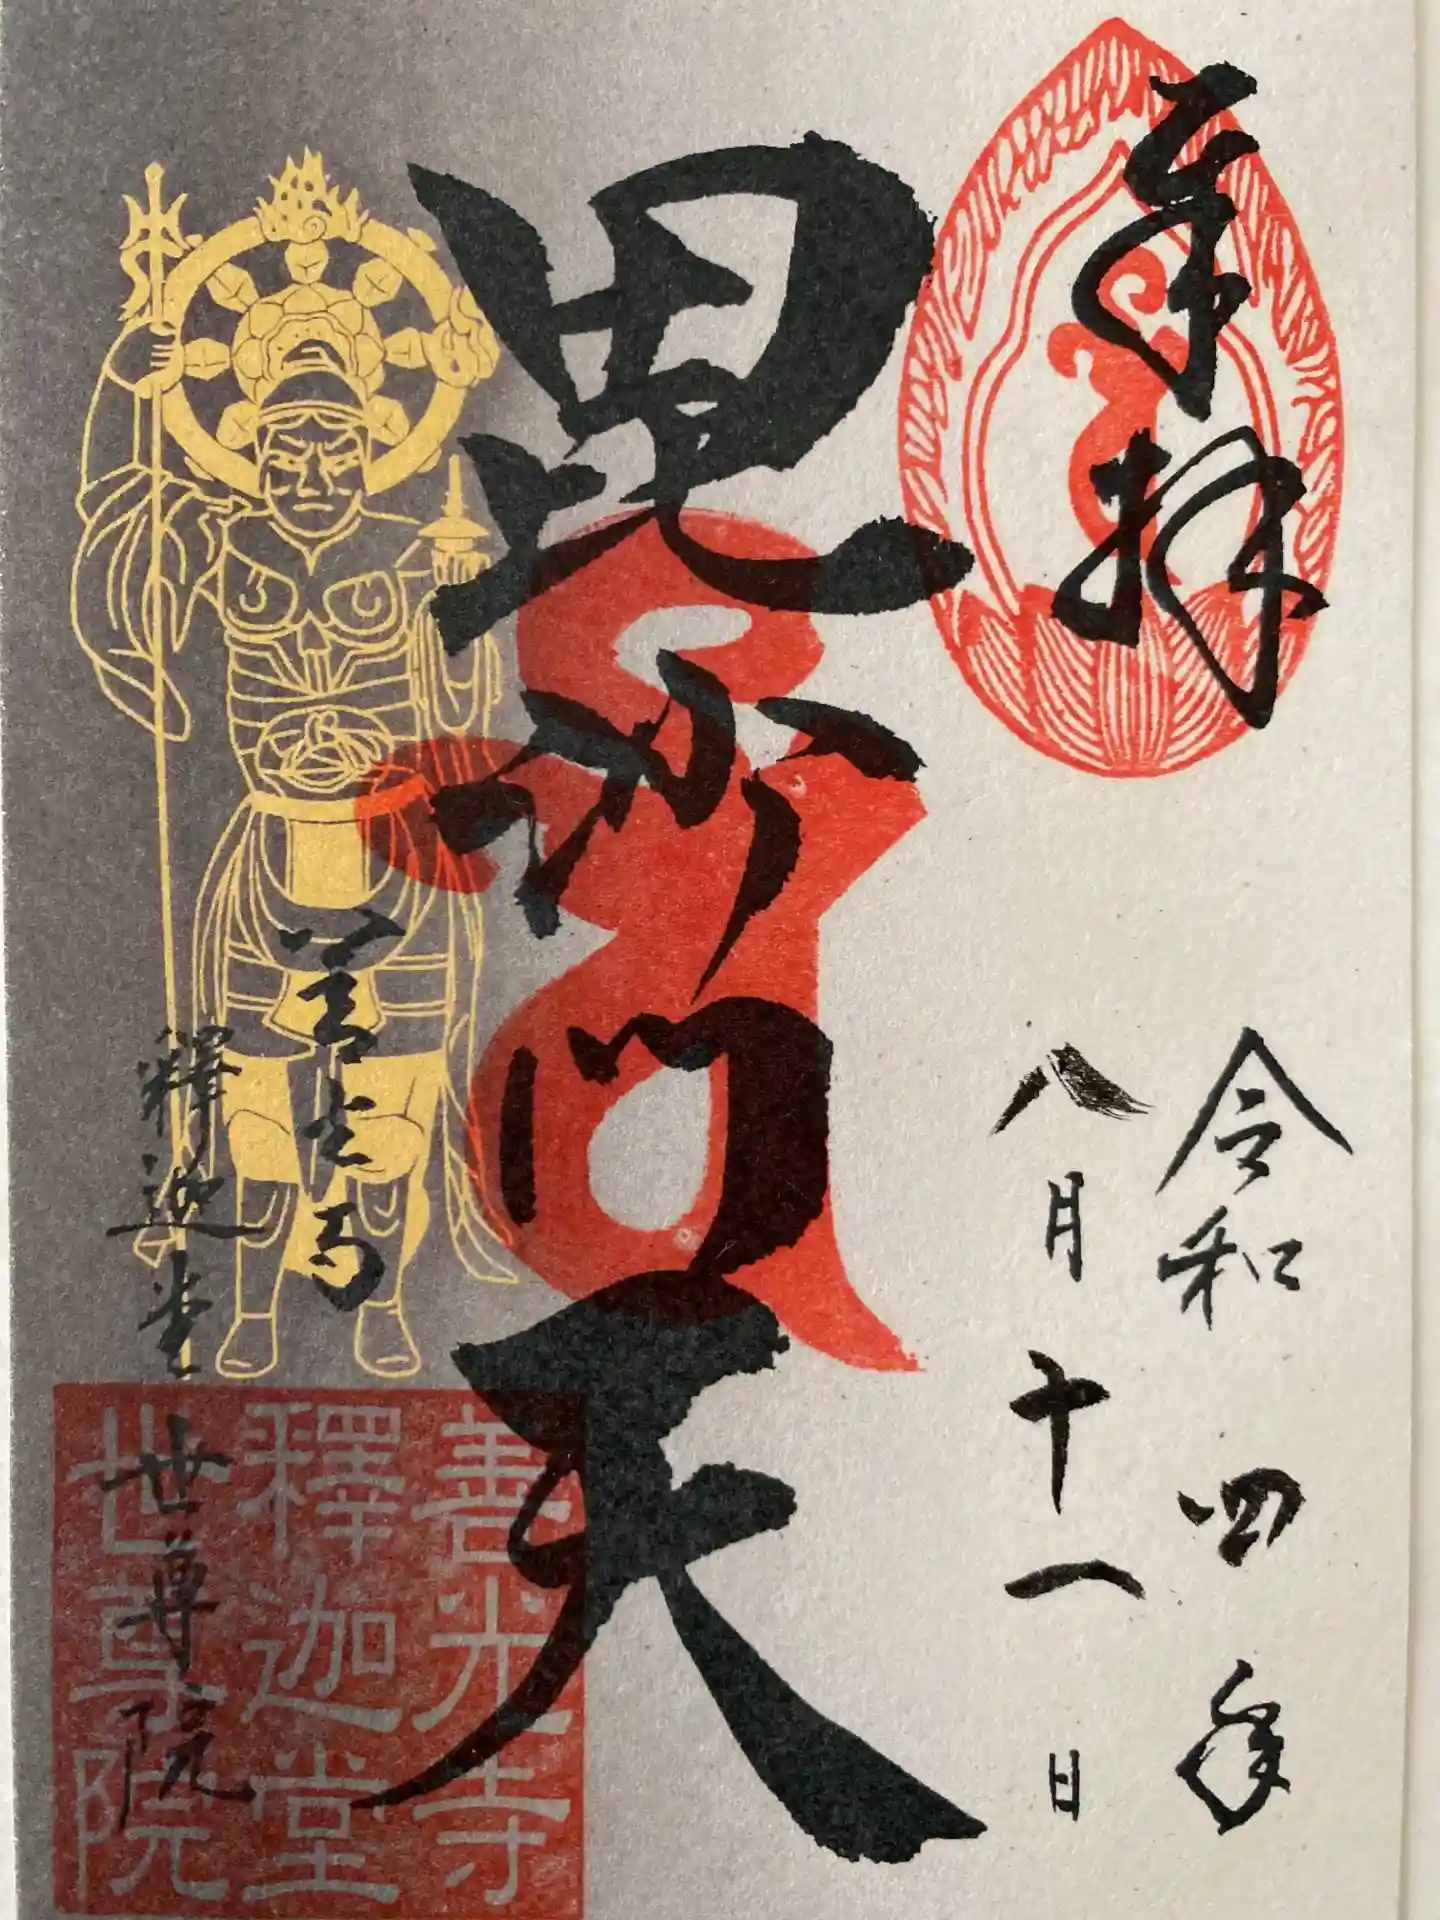 奉拝
令和四年
八月十一日
毘沙門天
善光寺
釋迦堂 世尊院
善光寺
釋迦堂
世尊院